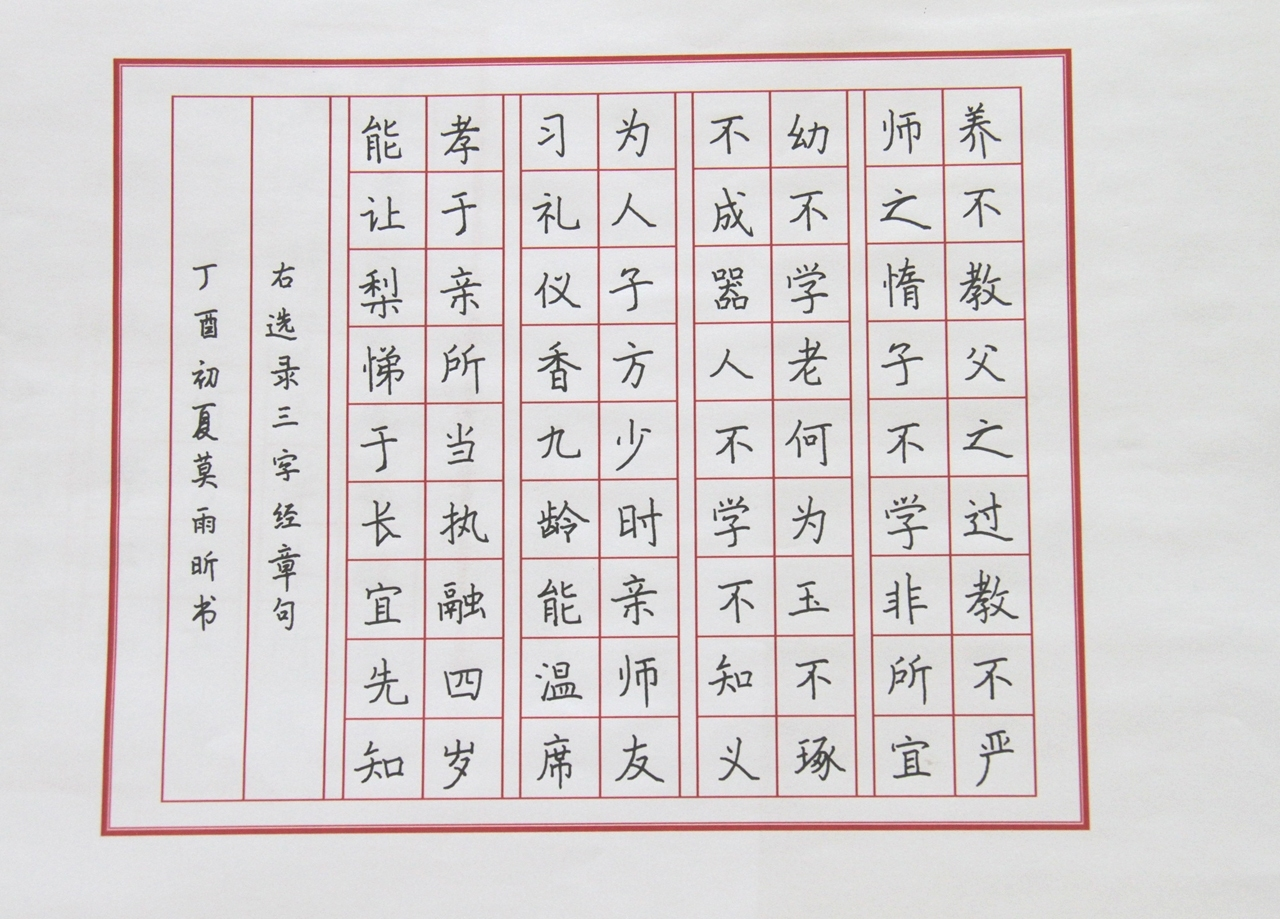 养不教父之过教不严
师之惰子不学非所宜
幼不学老何为玉不琢
不成器人不学不知义
为人子方少时亲师友
习礼仪香九龄能温席
孝于亲所当执融四岁
能让梨悌于长宜先知
右选录三字经章句
丁酉初夏莫雨昕书